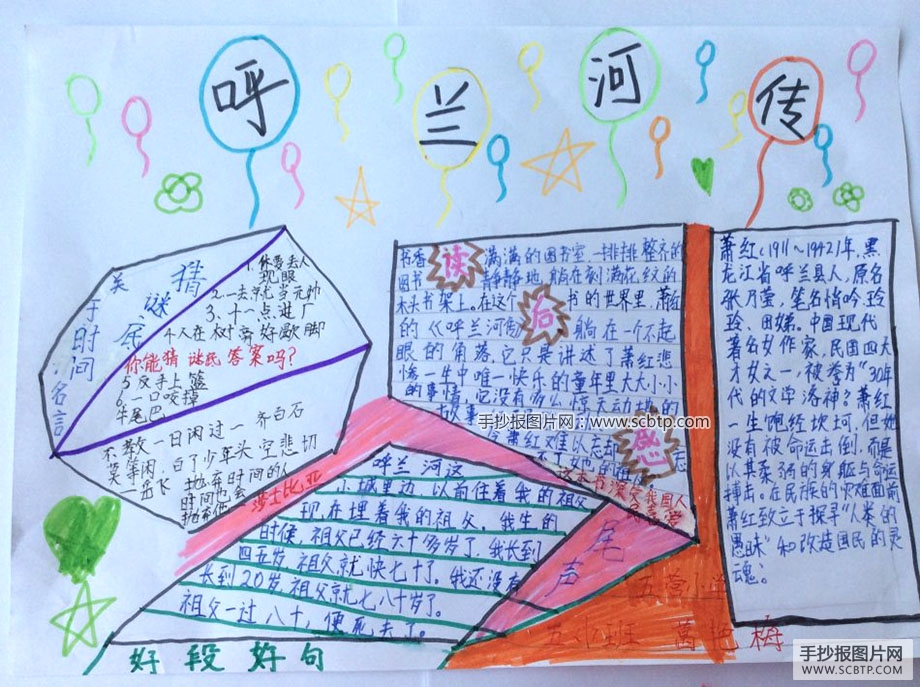 呼兰河传
猜谜底
1.休要丢人
现眼
2.一去就当元帅
3.十一点进厂
4.人在树旁好歇脚
你能猜谜底答案吗?
5.反手上篮
6.一口咬掉
牛尾巴
关于时间名言
不教一日闲过—齐白石
莫等闲,白了少年头,空悲切
—岳飞
抛弃时间的人
时间也会
抛弃他
莎士比亚
读后感
书香满满的图书室,一排排整齐的
图书静静地躺在刻满花纹的
木头书架上。在这个书的世界里,萧红
的《呼兰河传》躺在一个不起
眼的角落,它只是讲述了萧红悲
惨一生中唯一快乐的童年里大大小小
的事情,它没有
惊天动地的
故事
萧红难以忘
这本书深受我国人
喜爱
手抄报图片网:www.scbtp.com
萧红(1911~1942)年,黑
龙江省呼兰县人,原名
张乃莹,笔名悄吟、玲
玲、田娣。中国现代
著名女作家,民国四大
才女之一,被誉为"30年
代的文学洛神"萧红
一生饱经坎坷,但她
没有被命运击倒,而是
以其柔弱的身躯与命运
搏击。在民族的灾难面前
萧红致立于探寻"人类的
愚昧"和改造国民的灵
魂。
呼兰河这
小城里边,以前住着我的祖父,
现在埋着我的祖父。我生的
时候,祖父已经六十多岁了,我长到
四五岁,祖父就快七十了。我还没有
长到20岁,祖父就七八十岁了。
祖父一过八十,便死去了。
尾声
好段好句
五营小学
五(1)班
梅
手抄报图片网
WWW.SCBTP.COM